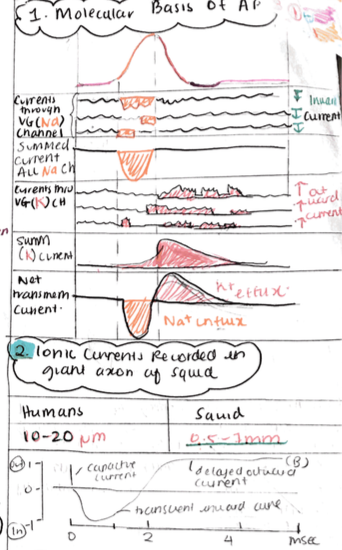 1. Molecular Basis Of AP
Currents
through
VG(Na)
Channel
Inward
Current
Summed
current
All Na Ch
Currents thru
VG(K)CH
out
ward
current
Summ
(K) current
Net
transmem
Current.
K+ efflux.
Na+ influx
2. Ionic Currents Recorded in
giant axon of squid
Humans
Squid
10-20 μm
0.5-1mm
1
capacitive
current
delayed outward
current
(B)
0
transient inward curre
(in) -1
0
2
4
msec